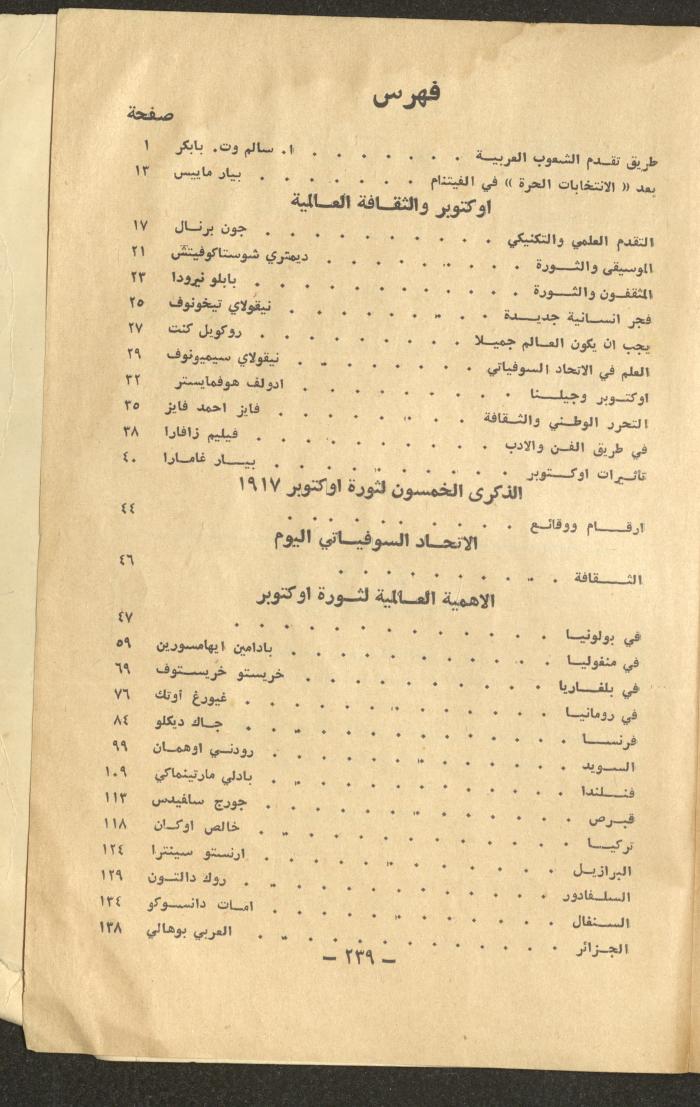 فهرس
صفحة
طريق تقدم الشعوب العربية . . . . . . . ا. سالم وت. بابكر ١
بعد « الانتخابات الحرة » في الفيتنام . . . . . . . بيار ماييس ١٣
اوكتوبر والثقافة العالمية
التقدم العلمي والتكنيكي . . . . . . . . . جون برنال ١٧
الموسيقى والثورة . . . . . . . . ديمتري شوستاكوفيتش ٢١
المثقفون والثورة . . . . . . . . . . . بابلو نيرودا ٢٣
فجر انسانية جديدة . . . . . . . . نيقولاي تيخونوف ٢٥
يجب ان يكون العالم جميلا . . . . . . . . روكويل كنت ٢٧
العلم في الاتحاد السوفياتي . . . . . . . نيقولاي سيميونوف ٢٩
اوكتوبر وجيلنا . . . . . . . . ادولف هوفمايستر ٣٢
التحرر الوطني والثقافة . . . . . . . . فايز احمد فايز ٣٥
في طريق الفن والادب . . . . . . . . . فيليم زافارا ٣٨
تأثيرات اوكتوبر . . . . . . . . . بيار غامارا ٤٠
الذكرى الخمسون لثورة اوكتوبر ١٩١٧
ارقام ووقائع . . . . . . . . . . ٤٤
الاتحاد السوفياتي اليوم
الثقافة . . . . . . . . . ٤٦
الاهمية العالمية لثورة اوكتوبر
في بولونيا . . . . . . . . . . . . ٤٧
في منغوليا . . . . . . . . . . بادامين ايهامسورين ٥٩
في بلغاريا . . . . . . . . . خريستو خريستوف ٦٩
في رومانيا . . . . . . . . . . . غيورغ أوتك ٧٦
فرنسا . . . . . . . . . . . جاك ديكلو ٨٤
السويد . . . . . . . . . . رودني اوهمان ٩٩
فنلندا . . . . . . . . . . بادلي مارتينماكي ١٠٩
قبرص . . . . . . . . . . . جورج سافيدس ١١٣
تركيا . . . . . . . . . . . خالص اوكان ١١٨
البرازيل . . . . . . . . . . . ارنستو سينترا ١٢٤
السلفادور . . . . . . . . . . . روك دالتون ١٢٩
السنغال . . . . . . . . . . امات دانسوكو ١٣٤
الجزائر . . . . . . . . . . . العربي بوهالي ١٣٨
— ٢٣٩ —